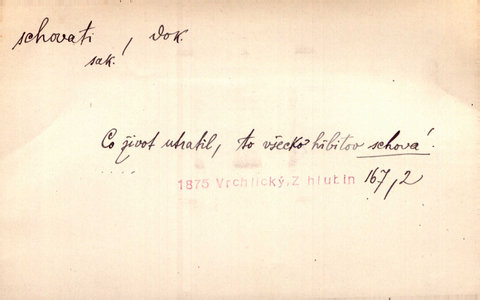 schovati, dok.
sak.
Co život utratil, to všecko hřbitov schová.
1875 Vrchlický, Z hlubin 167,2